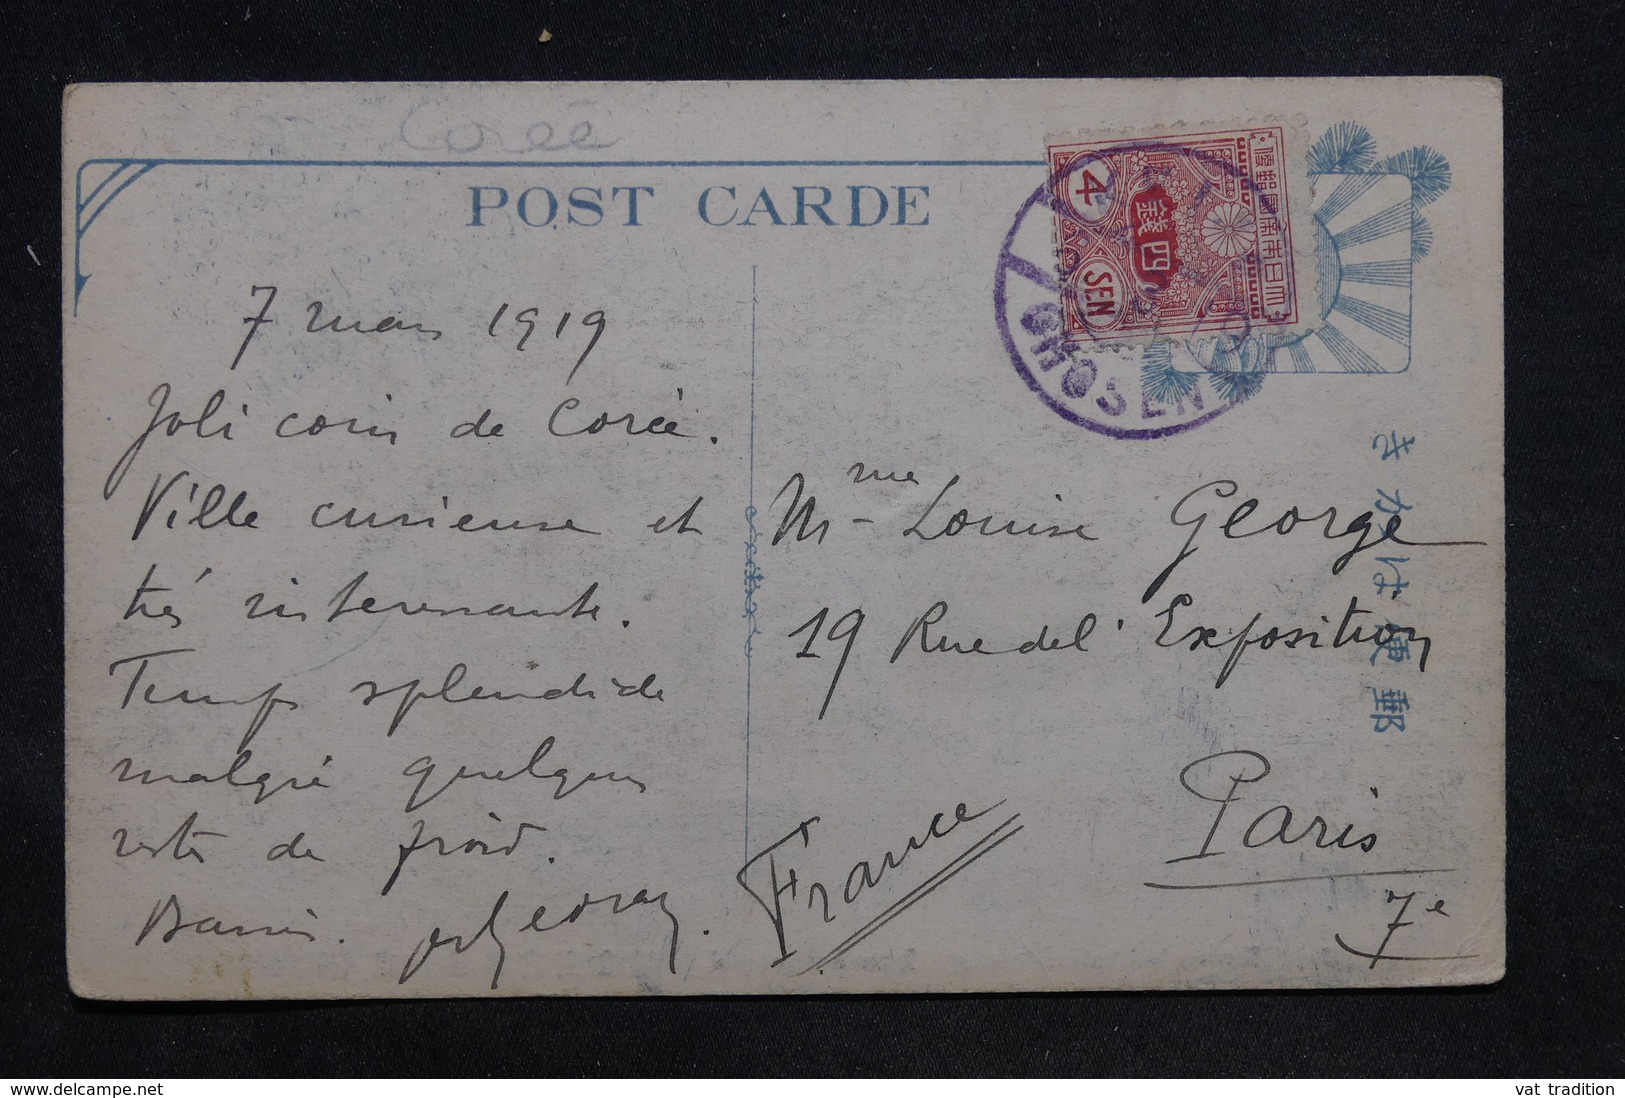 Corée
POST CARDE
7 mars 1919
Joli coin de Corée.
Ville curieuse et
très intéressante.
Temps splendide
malgré quelques
restes de froid.
Mme Louise George
19 Rue de l'Exposition
Paris
7e
France
大日本帝國郵便
四錢
4
SEN
CHOSEN
きかは便郵
www.delcampe.net
vat tradition